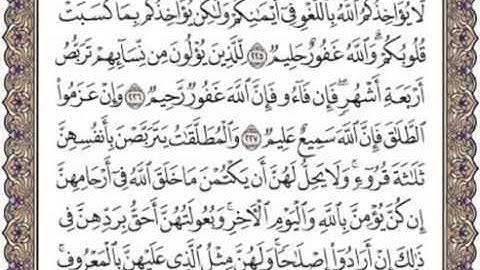 لَّا يُؤَاخِذُكُمُ ٱللَّهُ بِٱللَّغْوِ فِىٓ أَيْمَـٰنِكُمْ وَلَـٰكِن يُؤَاخِذُكُم بِمَا كَسَبَتْ
قُلُوبُكُمْ ۗ وَٱللَّهُ غَفُورٌ حَلِيمٌ ٢٢٥ لِّلَّذِينَ يُؤْلُونَ مِن نِّسَآئِهِمْ تَرَبُّصُ
أَرْبَعَةِ أَشْهُرٍ ۖ فَإِن فَآءُو فَإِنَّ ٱللَّهَ غَفُورٌ رَّحِيمٌ ٢٢٦ وَإِنْ عَزَمُوا۟
ٱلطَّلَـٰقَ فَإِنَّ ٱللَّهَ سَمِيعٌ عَلِيمٌ ٢٢٧ وَٱلْمُطَلَّقَـٰتُ يَتَرَبَّصْنَ بِأَنفُسِهِنَّ
ثَلَـٰثَةَ قُرُوٓءٍ ۚ وَلَا يَحِلُّ لَهُنَّ أَن يَكْتُمْنَ مَا خَلَقَ ٱللَّهُ فِىٓ أَرْحَامِهِنَّ
إِن كُنَّ يُؤْمِنَّ بِٱللَّهِ وَٱلْيَوْمِ ٱلْـَٔاخِرِ ۚ وَبُعُولَتُهُنَّ أَحَقُّ بِرَدِّهِنَّ فِى
ذَٰلِكَ إِنْ أَرَادُوٓا۟ إِصْلَـٰحًا ۚ وَلَهُنَّ مِثْلُ ٱلَّذِى عَلَيْهِنَّ بِٱلْمَعْرُوفِ ۚ